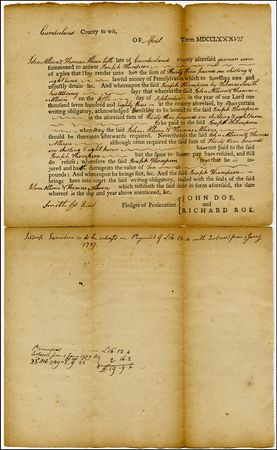 Cumberland County to wit,
OF April Term MDCCLXXXVII
John Allison & Thomas Allison both late of Cumberland County aforesaid yeomen were
summoned to answer Joseph Thompson
of a plea that they render unto him the sum of thirty three pounds one shilling &
eight pence lawful money of Pennsylvania which to him they owe and
unjustly detain &c. And whereupon the said Joseph Thompson by
his attorney say that whereas the said John Allison & Thomas
Allison on the day of September in the year of our Lord one
thousand seven hundred and eighty at the county aforesaid, by certain
writing obligatory, acknowledged to be bound to the said Joseph Thompson
in the aforesaid sum of thirty three pounds one shilling & eight pence
to be paid to the said Joseph Thompson
when the said John Allison & Thomas Allison
should be thereunto afterwards required. Nevertheless the said John Allison & Thomas
Allison although often required the said sum of thirty three pounds
one shilling & eight pence have not paid to the said
Joseph Thompson but the same to have paid have refused, and still
do refuse; wherefore the said Joseph Thompson say that he is in-
jured and hath damages to the value of
pounds: And whereupon he brings suit, &c. And the said Joseph Thompson
brings here into court the said writing obligatory, sealed with the seals of the said
John Allison & Thomas Allison which testifieth the debt in form aforesaid, the date
whereof is the day and year above mentioned, &c.
Smith for
Pledges of Prosecution,
JOHN DOE,
and
RICHARD ROE.
Execution is to be released on Payment of £16.13.4 with Interest from 1 Janry
1787.
£16 13 4
Interest from 1 Janry 1787
2. 16.
£19. 9.